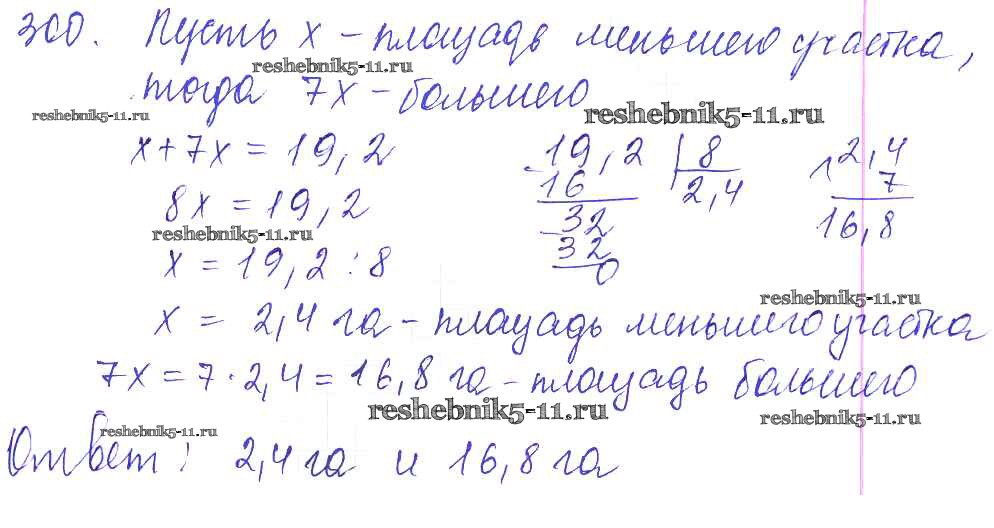 300. Пусть х – площадь меньшего участка,
reshebnik5-11.ru
тогда 7х – большего
reshebnik5-11.ru
reshebnik5-11.ru
х + 7х = 19,2
8х = 19,2
reshebnik5-11.ru
х = 19,2 : 8
19,2 | 8
16 2,4
32
32
0
2,4
7
16,8
reshebnik5-11.ru
х = 2,4 га – площадь меньшего участка
7х = 7 · 2,4 = 16,8 га – площадь большего
reshebnik5-11.ru
reshebnik5-11.ru
reshebnik5-11.ru
Ответ: 2,4 га и 16,8 га